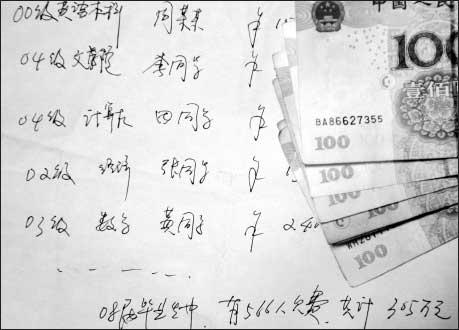 00级英语本科 周某某 欠 1
04级 文学院 李同学 欠
04级 计算机 田同学 欠
02级 经济 张同学 欠 1
03级 数学 黄同学 欠 240
08届毕业生中,有566人欠费,共计305万元
中国人民
100
壹佰
BA86627355
100
100
100
100